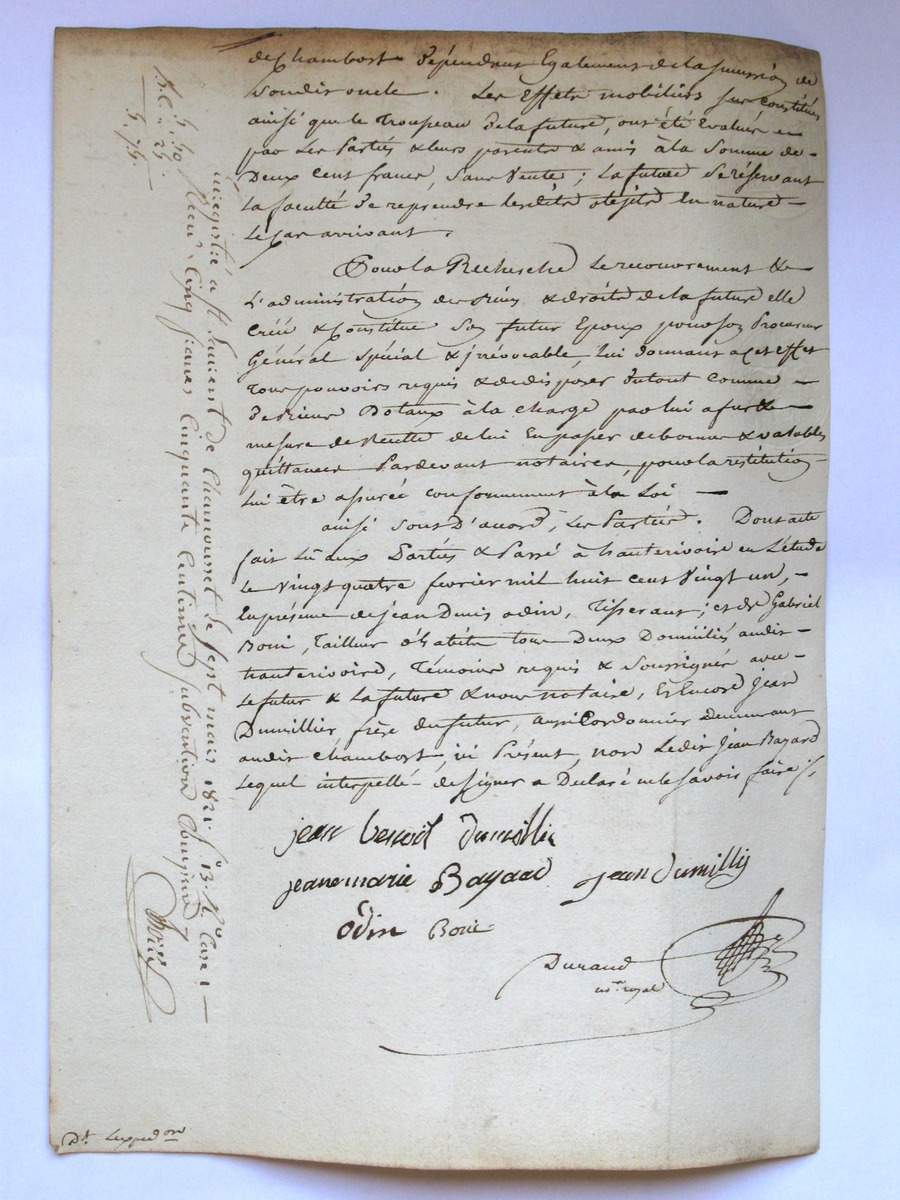 de Chambost dépendant Egalement de la succession de
son dit oncle. Les Effets mobiliers sus constitués
ainsi que le Trousseau de la future, ont été Evalués
par Les Parties & leurs parents & amis à la Somme de
Deux cent francs, Sans Vente; La future Se réservant
La faculté de reprendre lesdits objets En nature
Le Cas arrivant.
Pour la Recherche Le recouvrement &
L'administration des Biens & droits de la future elle
Créé & Constitue Son futur Epoux pour son Procureur
Général Spécial & jrrévocable, lui donnant a cet effet
Tous pouvoirs requis & de disposer du tout comme
de Biens Dotaux à la charge par lui a fur &
mesure de Recette de lui En passer de bonnes & valables
quittances Pardevant notaires, pour la restitution
Lui être assurée conformement à La Loi
ainsi sont D'accord, Les Parties. Dont acte
fait Lû aux Parties & Passé à hauterivoire en L'étude
Le Vingt quatre février mil huit cent Vingt un,
En présence de jean Denis odin, Tisserant; et de Gabriel
Boni, Tailleur d'habits tous Deux Domiciliés audit
hauterivoire, Témoins requis & Soussignés avec
Le futur & La future & nous notaire, Et Encore jean
Dumillier, frère du futur, aussi Cordonnier demeurant
audit Chambost, ici Présent, non Ledit Jean Bayard
Lequel interpellé de signer a Déclaré ne le Savoir faire
jean benoit dumillie
jeanemarie Bayard jean dumillie
Odin Boni
Durand
not.re royal
Enregistré à St Laurent de Chamousset le sept mars 1821 f.o 13 R.o Case 1
Reçu cinq francs cinquante centimes subvention comprise
5. 50
5. 75
Dt. L'expedon